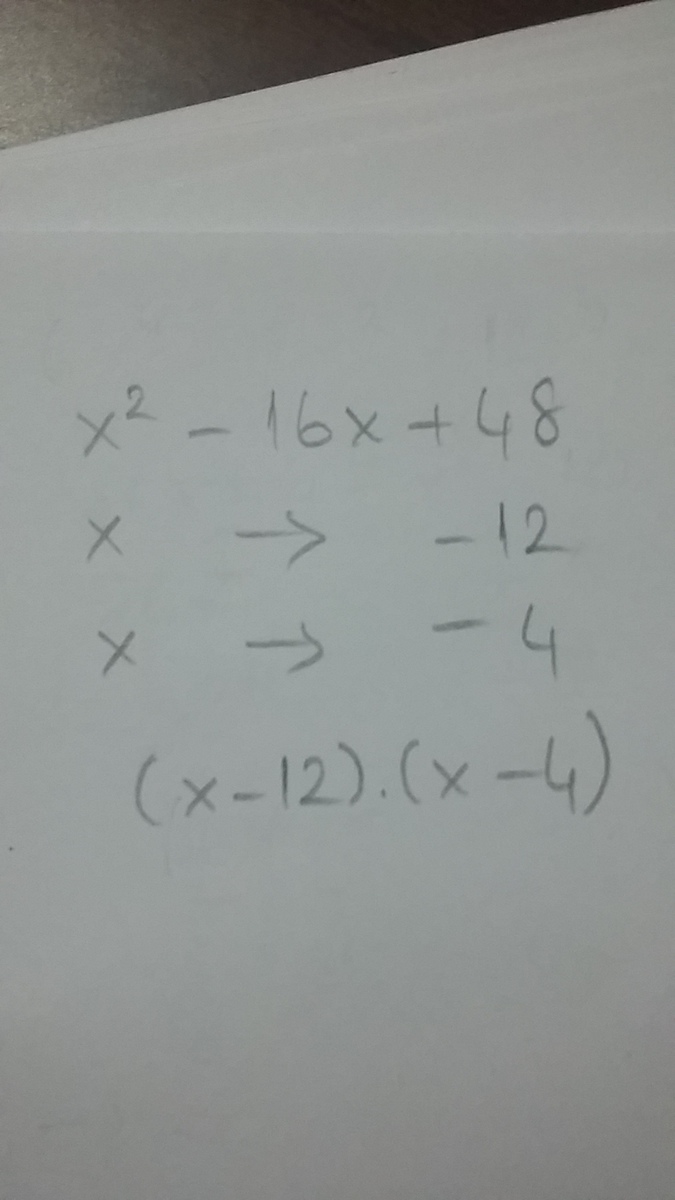 x² - 16x + 48
x → -12
x → -4
(x-12).(x-4)